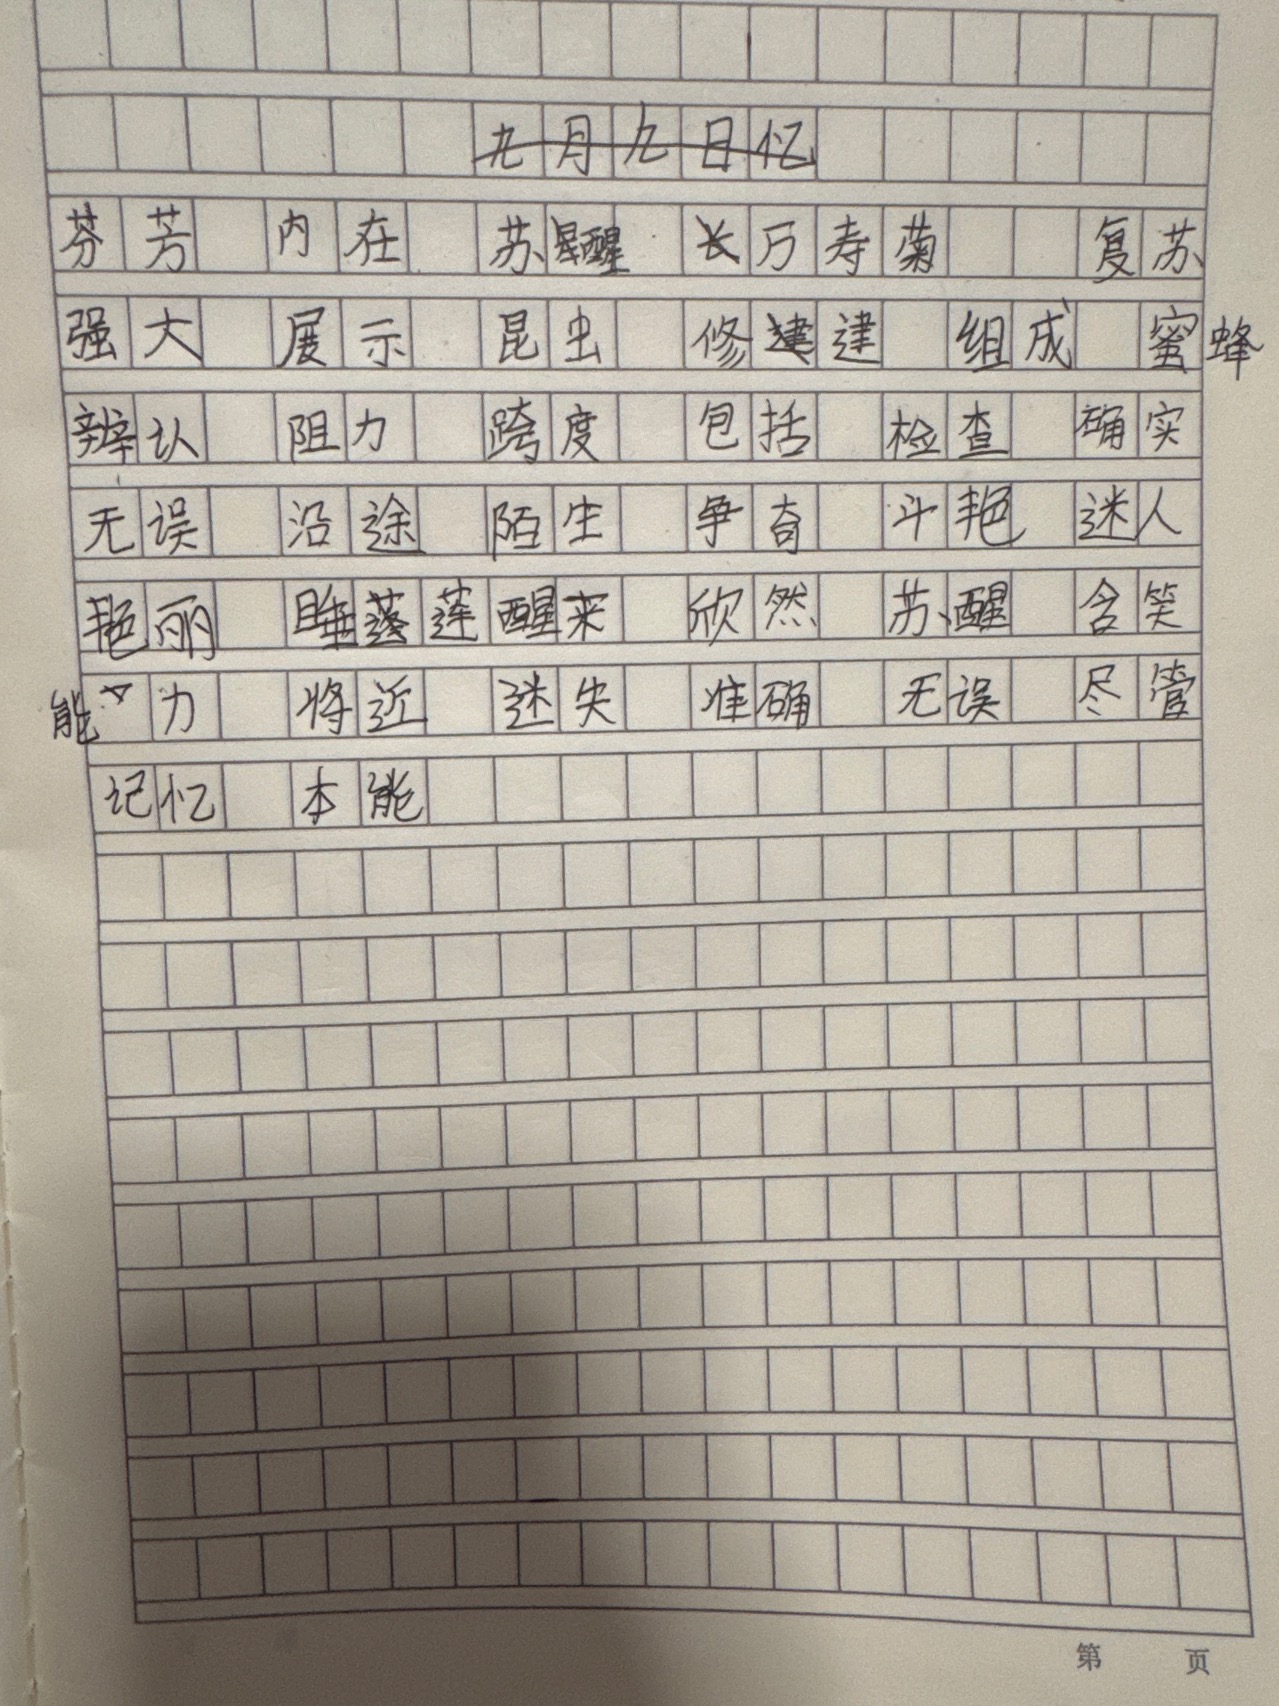 九月九日忆
芬芳 内在 苏醒 长万寿菊 复苏
强大 展示 昆虫 修建建 组成 蜜蜂
辨认 阻力 跨度 包括 检查 确实
无误 沿途 陌生 争奇 斗艳 迷人
艳丽 睡莲醒来 欣然 苏醒 含笑
能力 将近 迷失 准确 无误 尽管
记忆 本能
第 页